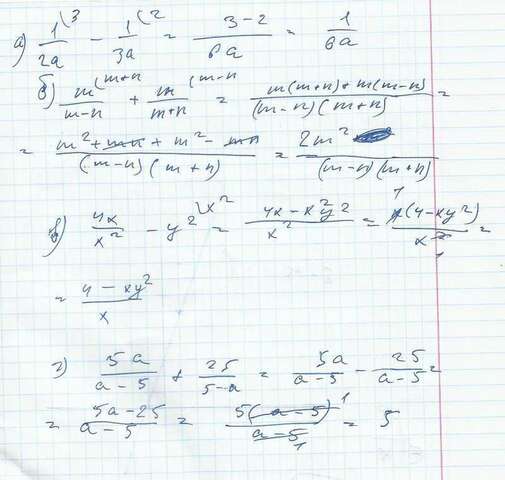 а) 1/2a ⁽³ - 1/3a ⁽² = 3-2/6a = 1/6a
б) m/m-n ⁽m+n + m/m+n ⁽m-n = m(m+n)+m(m-n)/(m-n)(m+n) =
= m²+mn+m²-mn/(m-n)(m+n) = 2m²/(m-n)(m+n)
в) 4x/x² - y² \x² = 4x-x²y²/x² = x(4-xy²)/x² =
= 4-xy²/x
г) 5a/a-5 + 25/5-a = 5a/a-5 - 25/a-5 =
= 5a-25/a-5 = 5(a-5)/a-5 = 5